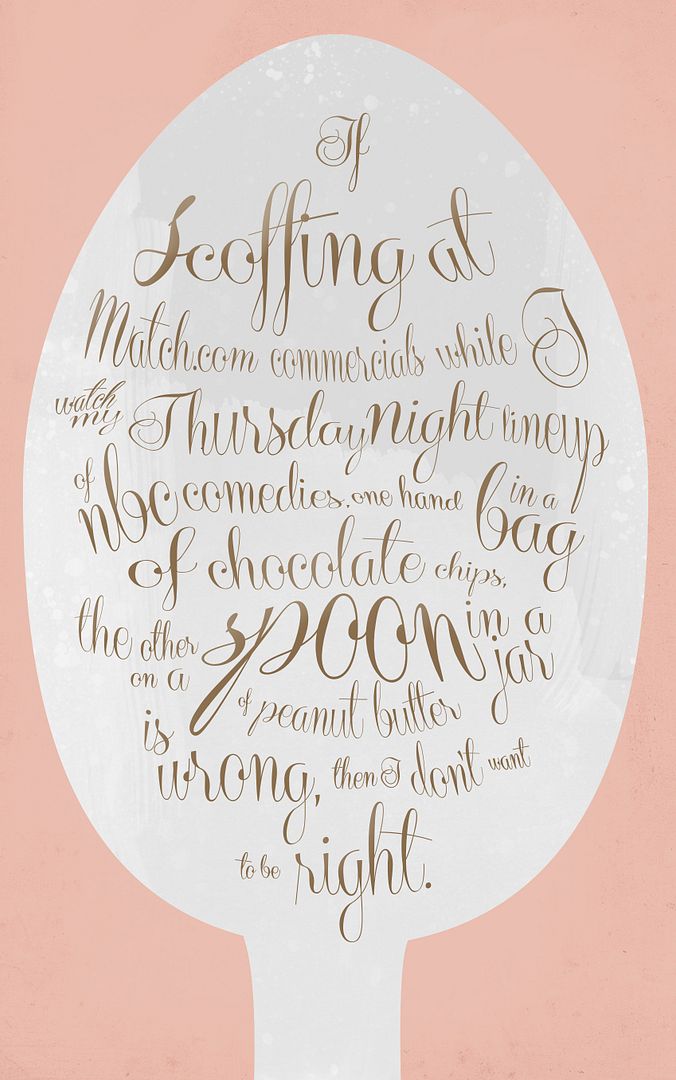 If
Scoffing at
Match.com commercials while I
watch my Thursday night lineup
of nbc comedies, one hand in a bag
of chocolate chips,
the other on a spoon in a jar
of peanut butter
is wrong, then I don't want
to be right.